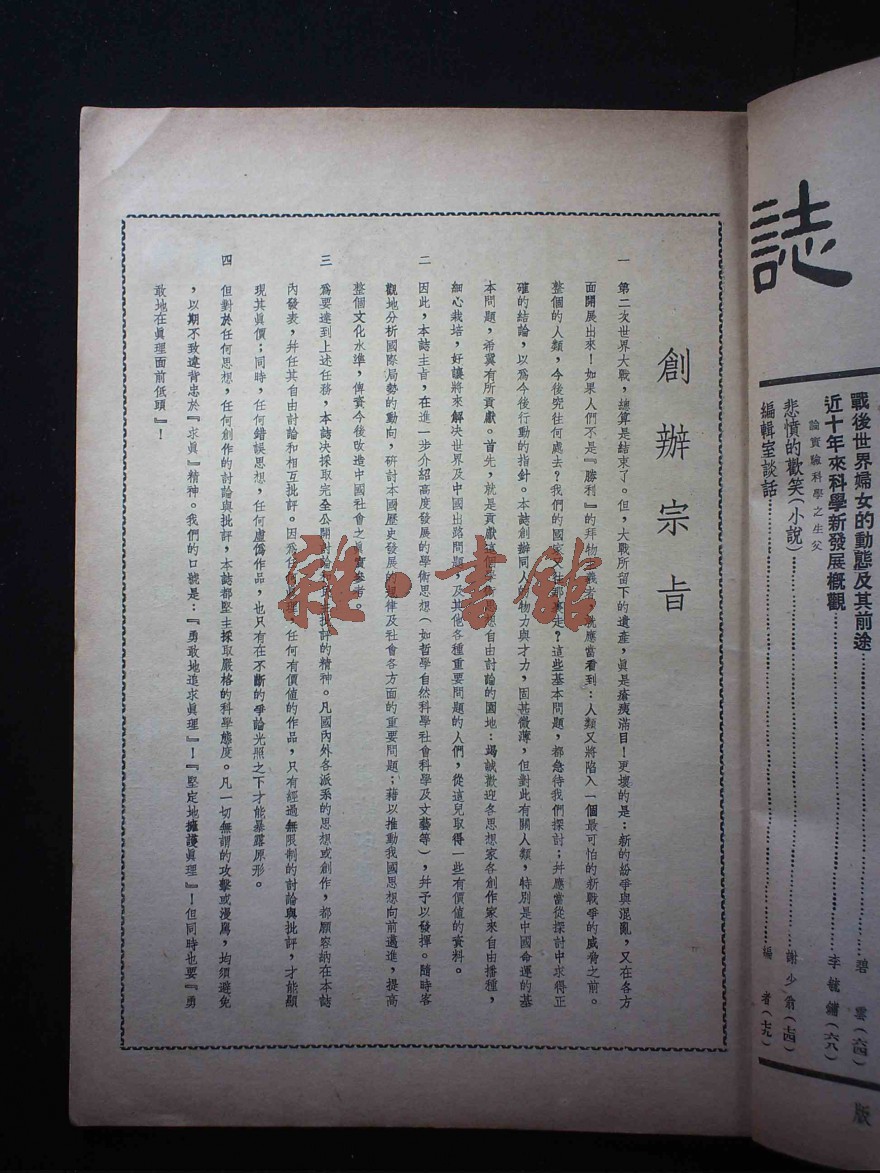 創辦宗旨
一　第二次世界大戰，總算是結束了。但，大戰所留下的遺產，眞是瘡痍滿目！更壞的是：新的紛爭與混亂，又在各方
面開展出來！如果人們不是『勝利』的拜物主義者，就應當看到：人類又將陷入一個最可怕的新戰爭的威脅之前。
整個的人類，今後究往何處去？我們的國家又往那裏走？這些基本問題，都急待我們探討；幷應當從探討中求得正
確的結論，以爲今後行動的指針。本誌創辦同人的物力與才力，固甚微薄，但對此有關人類，特別是中國命運的基
本問題，希冀有所貢獻。首先，就是貢獻這個學術思想自由討論的園地：竭誠歡迎各思想家各創作家來自由播種，
細心栽培，好讓將來解決世界及中國出路問題，及其他各種重要問題的人們，從這兒取得一些有價值的資料。
二　因此，本誌主旨，在進一步介紹高度發展的學術思想（如哲學自然科學社會科學及文藝等），幷予以發揮。隨時客
觀地分析國際局勢的動向，研討本國歷史發展的規律及社會各方面的重要問題；藉以推動我國思想向前邁進，提高
整個文化水準，俾資今後改造中國社會之眞實參考。
三　爲要達到上述任務，本誌决採取完全公開討論與自由批評的精神。凡國內外各派系的思想或創作，都願容納在本誌
內發表，幷任其自由討論和相互批評。因爲任何眞理，任何有價值的作品，只有經過無限制的討論與批評，才能顯
現其眞價；同時，任何錯誤思想，任何虛僞作品，也只有在不斷的爭論光照之下才能暴露原形。
四　但對於任何思想，任何創作的討論與批評，本誌都堅主採取嚴格的科學態度。凡一切無謂的攻擊或漫罵，均須避免
，以期不致違背忠於『求眞』精神。我們的口號是：『勇敢地追求眞理』！『堅定地擁護眞理』！但同時也要『勇
敢地在眞理面前低頭』！
雜·書館
誌
戰後世界婦女的動態及其前途………碧雲（六四）
近十年來科學新發展概觀………李毓鏞（六八）
論實驗科學之生父
悲憤的歡笑（小說）………謝少翁（七四）
編輯室談話………編者（七九）
版